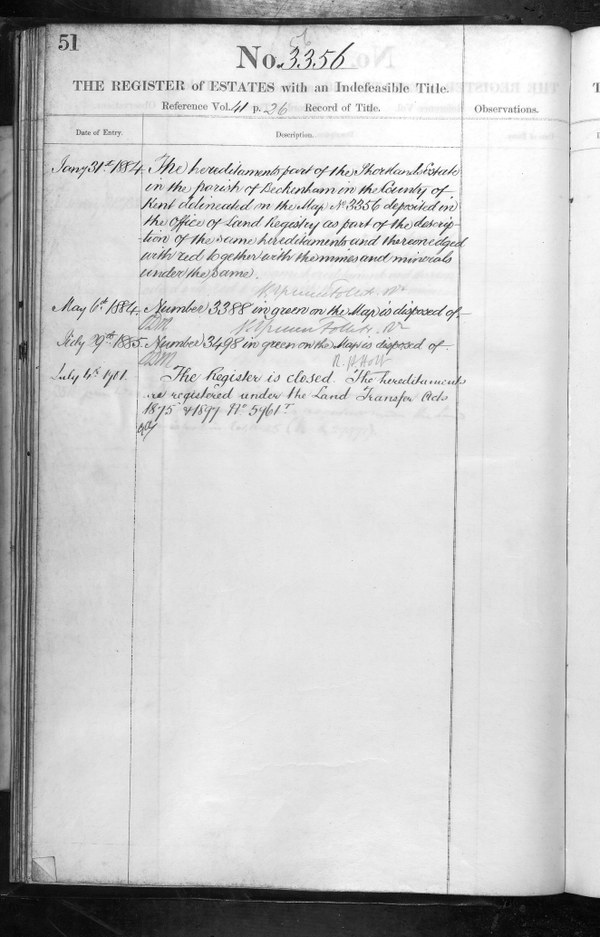 51
No. 3356
THE REGISTER of ESTATES with an Indefeasible Title.
Reference Vol. 41 p. 26 Record of Title.
Observations.
Date of Entry.
Description.
Jany 31st 1884. The hereditaments part of the Shortlands Estate
in the parish of Beckenham in the County of
Kent delineated on the Map No 3356 deposited in
the Office of Land Registry as part of the descrip-
-tion of the same hereditaments and thereon edged
with red together with the mines and minerals
under the same.
May 6th 1884. Number 3388 in green on the Map is disposed of
July 29th 1885. Number 3498 in green on the Map is disposed of.
R. H. Holt
July 4th 1901. The Register is closed. The hereditaments
are registered under the Land Transfer Acts
1875 & 1897 No 5961